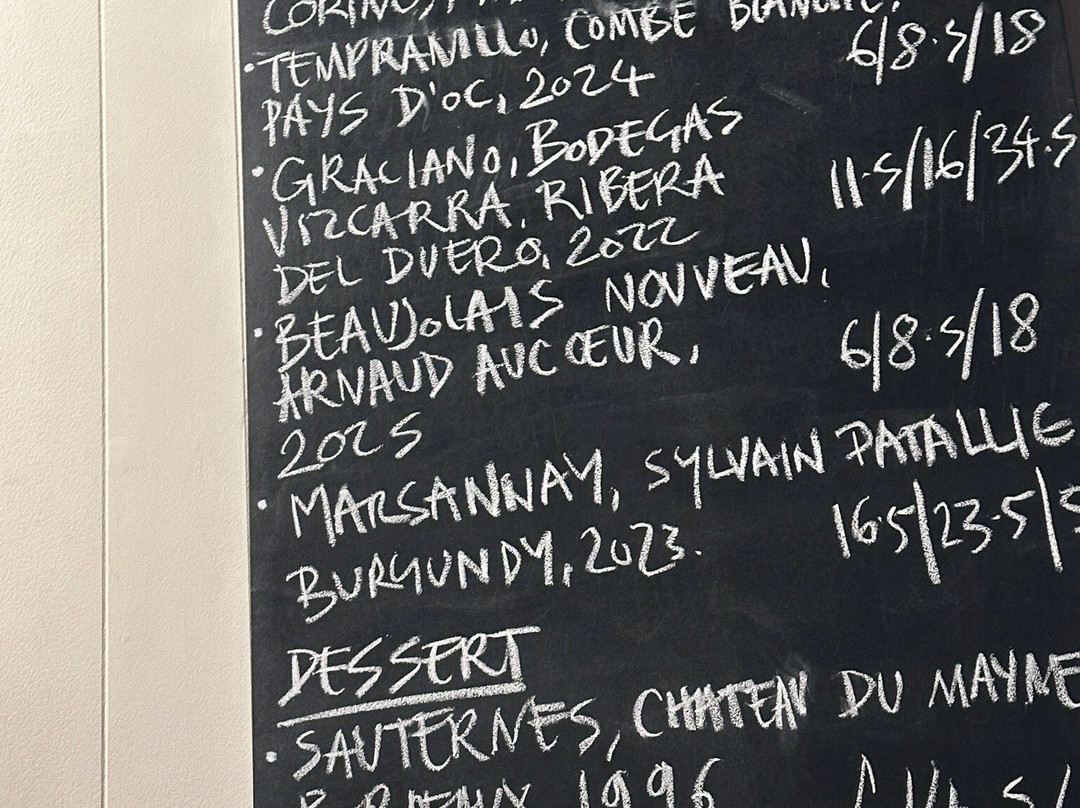 • TEMPRANILLO, COMBE BLANCHE,
PAYS D'OC, 2024 6/8.5/18
• GRACIANO, BODEGAS
VIZCARRA, RIBERA 11.5/16/34.5
DEL DUERO, 2022
• BEAUJOLAIS NOUVEAU,
ARNAUD AUCŒUR, 6/8.5/18
2025
• MARSANNAY, SYLVAIN PATALLIE
BURGUNDY, 2023. 16.5/23.5/
DESSERT
• SAUTERNES, CHATEAU DU MAYNE
1996